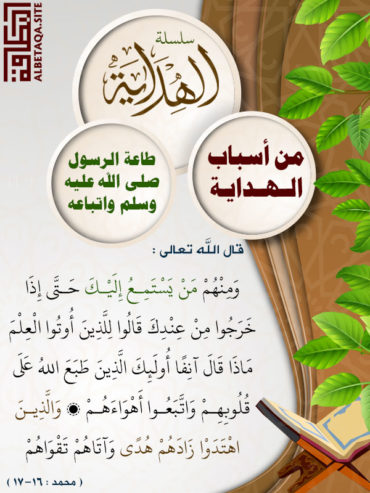 البطاقة
ALBETAQA.SITE
سلسلة
الهداية
من أسباب
الهداية
طاعة الرسول
صلى الله عليه
وسلم واتباعه
قال الله تعالى :
وَمِنْهُمْ مَنْ يَسْتَمِعُ إِلَيْكَ حَتَّى إِذَا
خَرَجُوا مِنْ عِنْدِكَ قَالُوا لِلَّذِينَ أُوتُوا الْعِلْمَ
مَاذَا قَالَ آنِفًا أُولَئِكَ الَّذِينَ طَبَعَ اللهُ عَلَى
قُلُوبِهِمْ وَاتَّبَعُوا أَهْوَاءَهُمْ ۞ وَالَّذِينَ
اهْتَدَوْا زَادَهُمْ هُدًى وَآتَاهُمْ تَقْوَاهُمْ
( محمد : ١٦-١٧ )